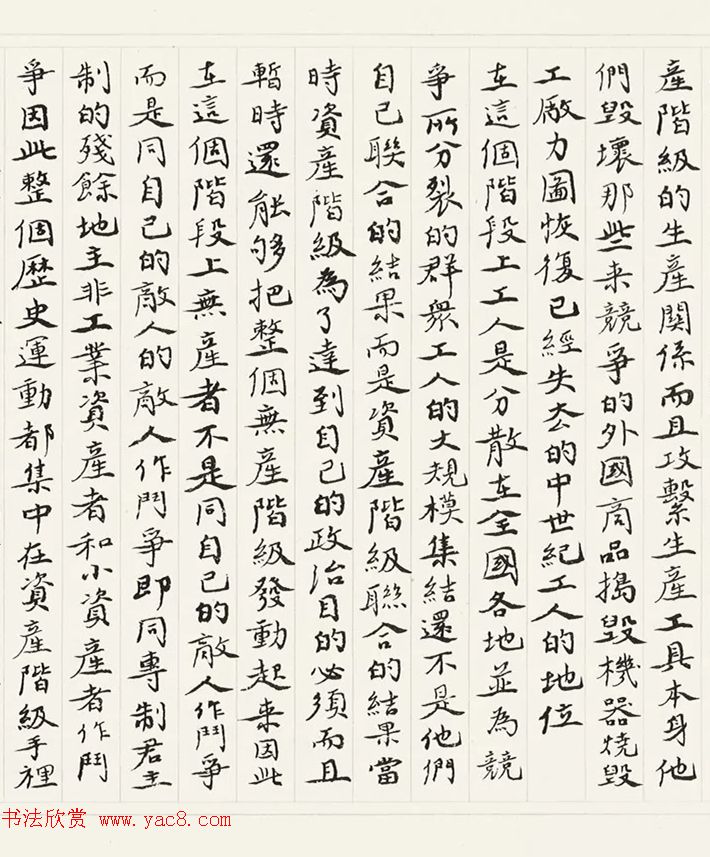 產階級的生產關係而且攻繫生產工具本身他
們毀壞那些来競爭的外國商品搗毀機器燒毀
工廠力圖恢復已經失去的中世紀工人的地位
在這個階段上工人是分散在全國各地並為競
爭所分裂的群衆工人的大規模集結還不是他們
自己聯合的結果而是資產階級聯合的結果當
時資產階級為了達到自己的政治目的必須而且
暫時還能够把整個無產階級發動起来因此
在這個階段上無產者不是同自己的敵人作鬥爭
而是同自己的敵人的敵人作鬥爭即同專制君主
制的殘餘地主非工業資產者和小資產者作鬥
爭因此整個歷史運動都集中在資產階級手裡
书法欣赏 www.yac8.com